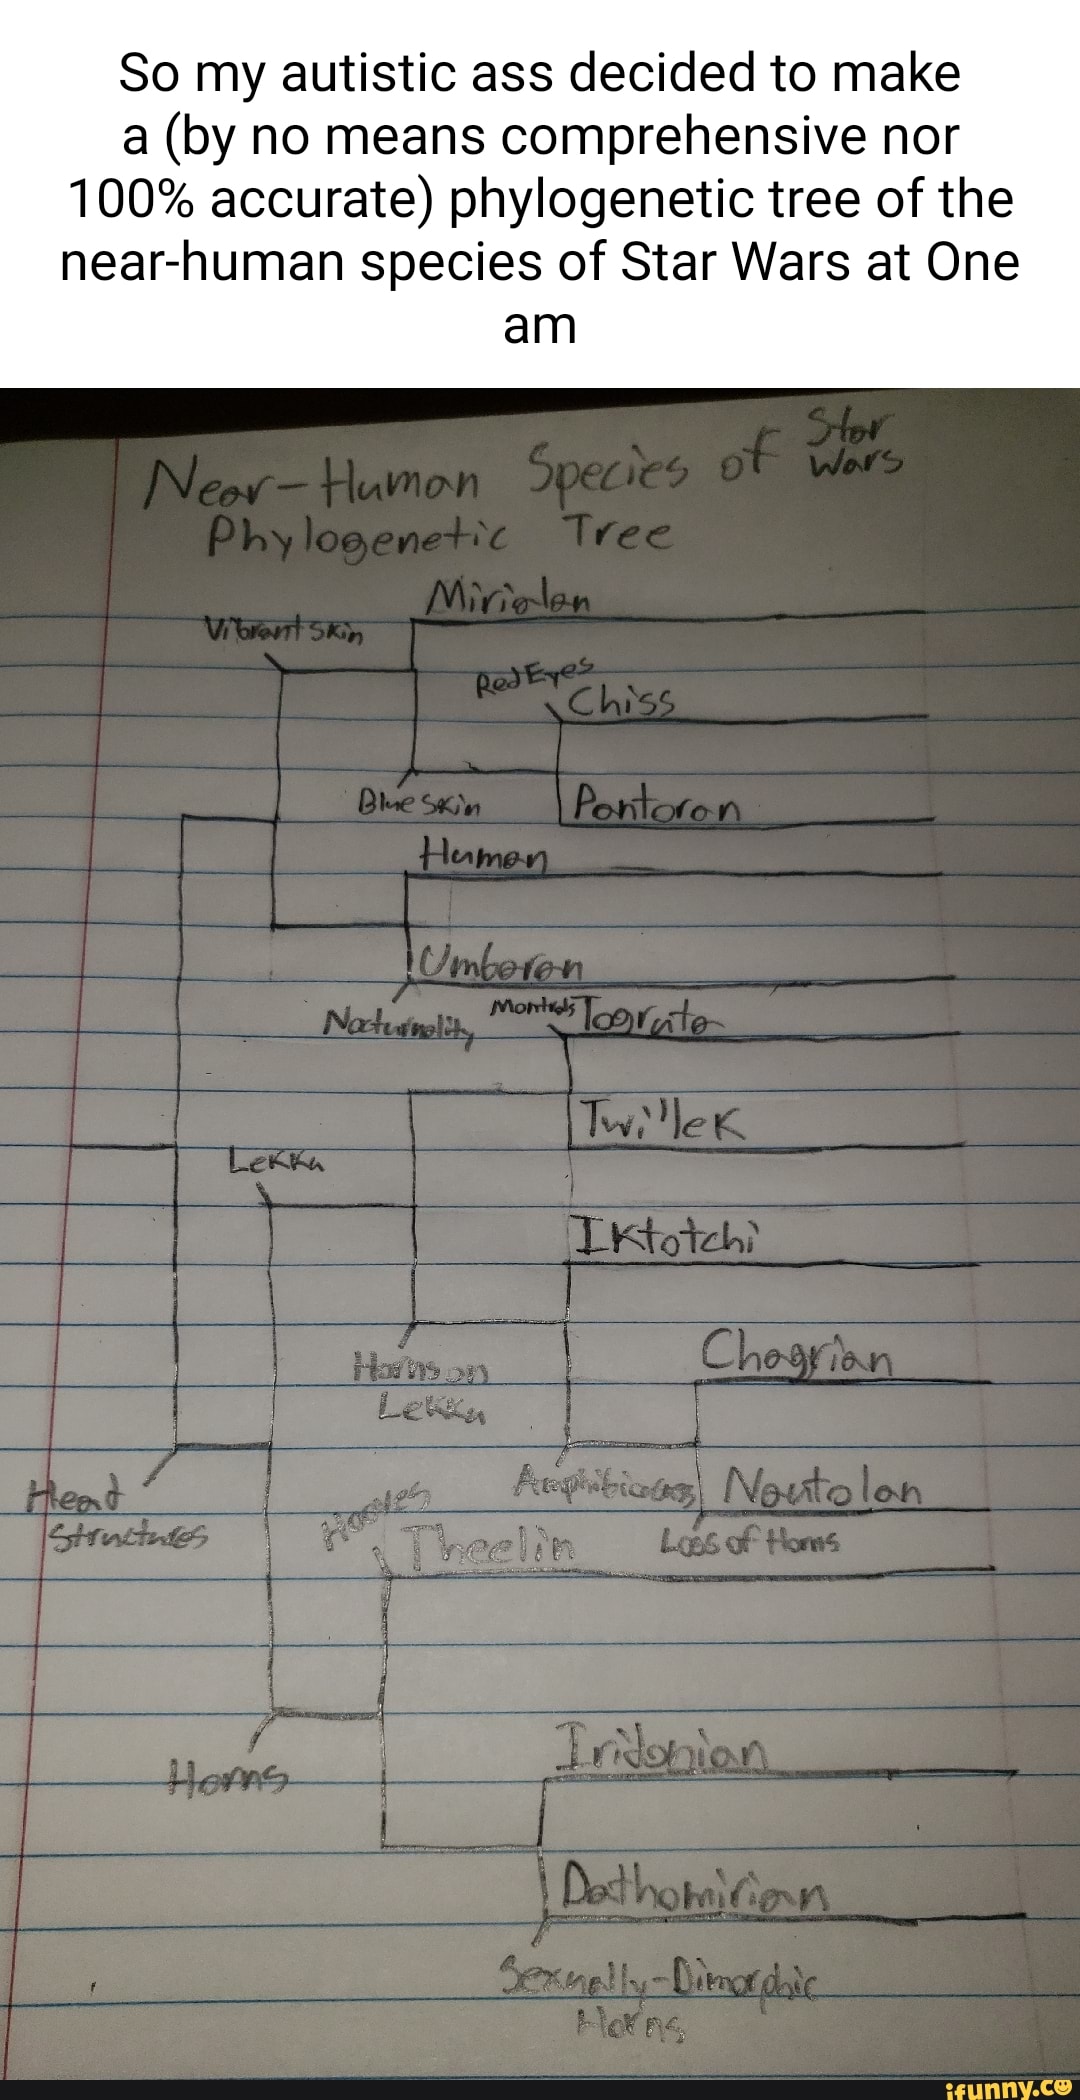 So my autistic ass decided to make
a (by no means comprehensive nor
100% accurate) phylogenetic tree of the
near-human species of Star Wars at One
am
Near-Human Species of Star Wars
Phylogenetic Tree
Mirialan
Vibrant Skin
Red Eyes
Chiss
Blue Skin
Pantoran
Human
Umbaran
Nocturnality
Montrals
Togruta
Twi'lek
Lekku
Iktotchi
Chagrian
Horns on
Lekku
Head
Structures
Amphibiousness
Nautolan
Loss of Horns
Hooves
Theelin
Iridonian
Horns
Dathomirian
Sexually-Dimorphic
Horns
ifunny.co